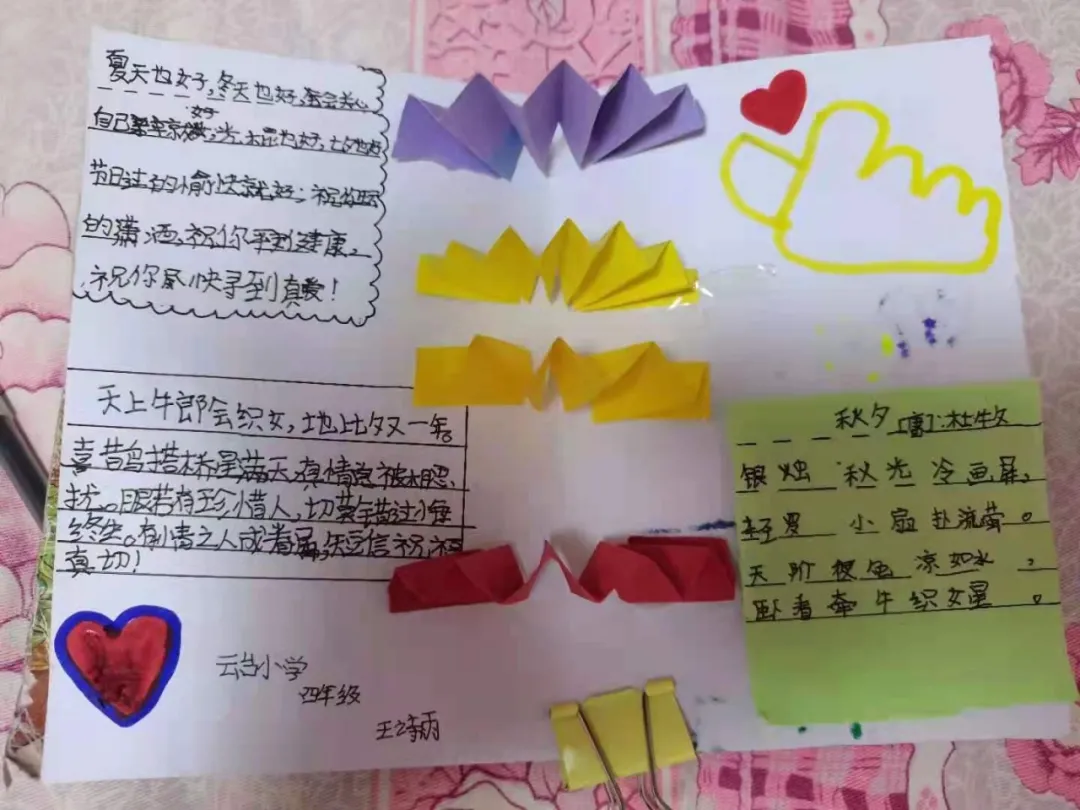 夏天也好,冬天也好,学会关心
自己就好
节日过的愉快就好;祝你
的潇洒,祝你健康,
祝你尽快寻到真爱!
天上牛郎会织女,地比夕又一年。
喜昔鸟搭桥星满天,有情
扰。眼若有珍惜人,切莫错过悔
终生。有情之人成眷属,短信祝福
真切!
云台小学
四年级
王诗雨
秋夕 [唐]:杜牧
银烛 秋光 冷画屏,
轻罗 小扇扑流萤。
天阶夜色 凉如水,
卧看牵牛织女星。